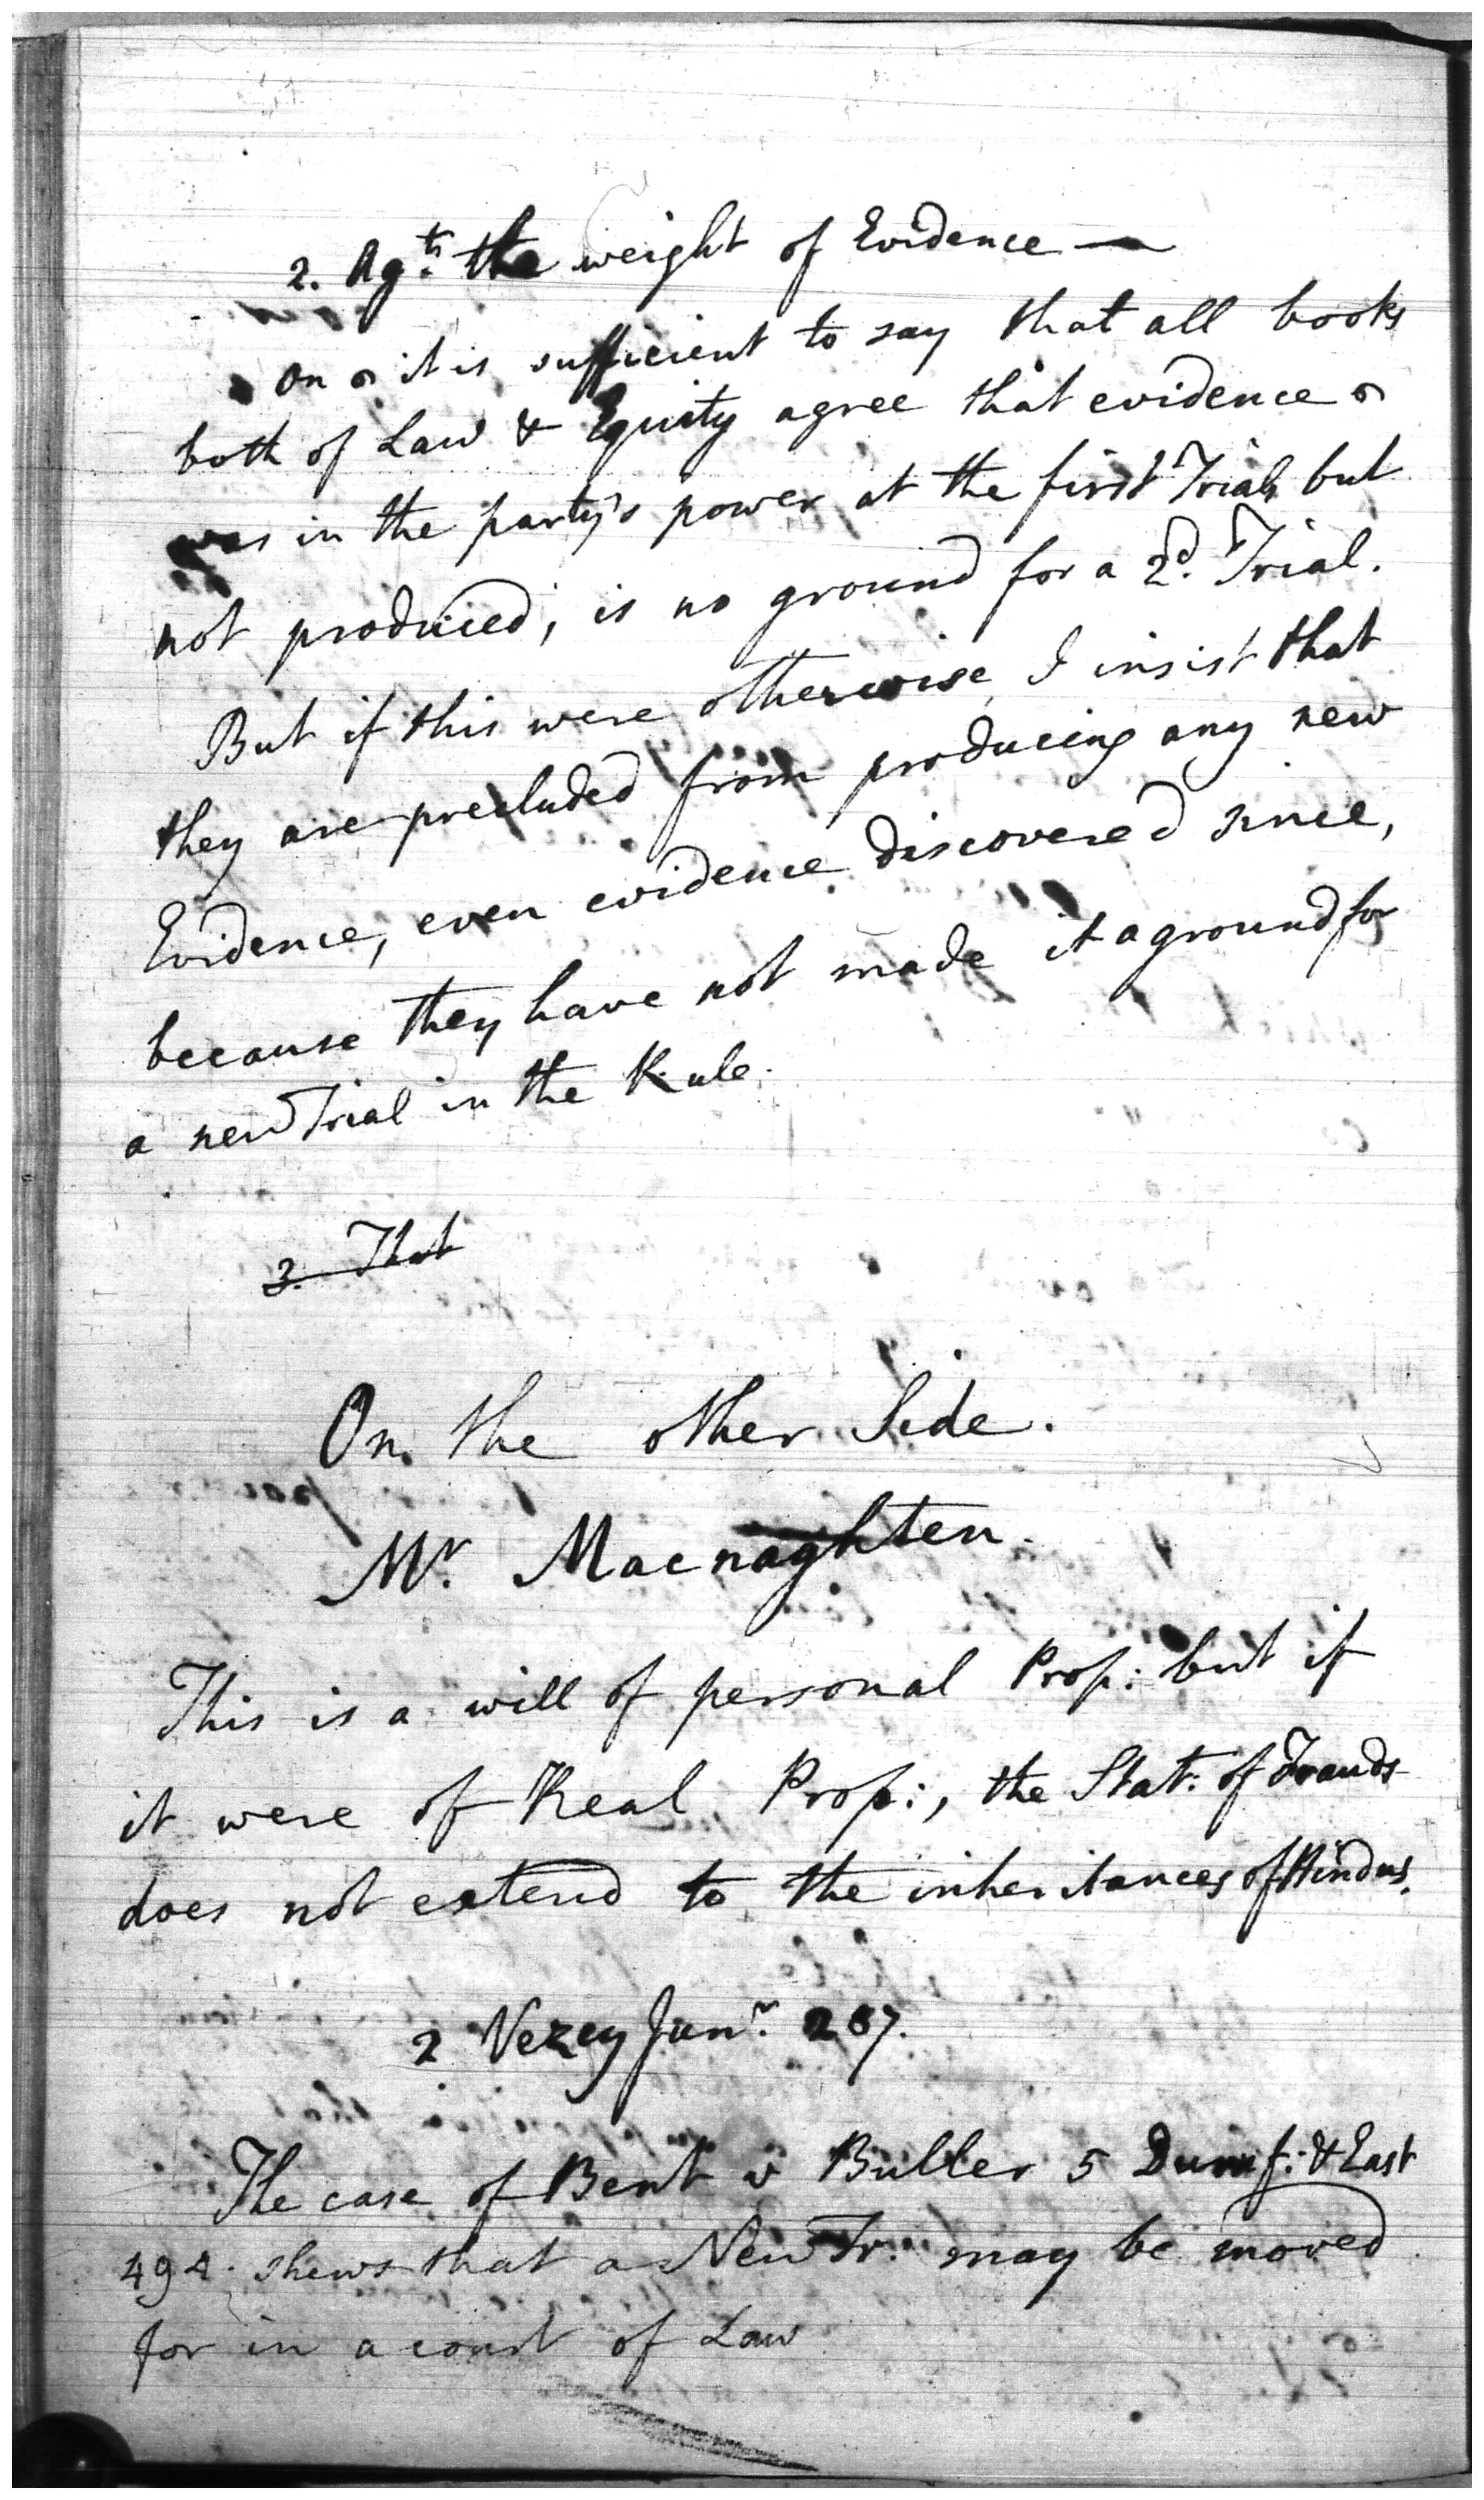 2. Agst. the weight of Evidence —
On it is sufficient to say that all books
both of Law & Equity agree that evidence
was in the party's power at the first Trial, but
not produced, is no ground for a 2d. Trial.
But if this were otherwise, I insist that
they are precluded from producing any new
Evidence, even evidence discovered since,
because they have not made it a ground for
a new Trial in the Rule.
3. That
On the other Side.
Mr. Macnaghten.
This is a will of personal Prop: but if
it were of Real Prop:, the Stat: of Frauds
does not extend to the inheritances of Hindus.
2 Vezey Junr. 287.
The case of Bent v Buller 5 Durnf: & East
494. shews that a New Tr: may be moved
for in a court of Law